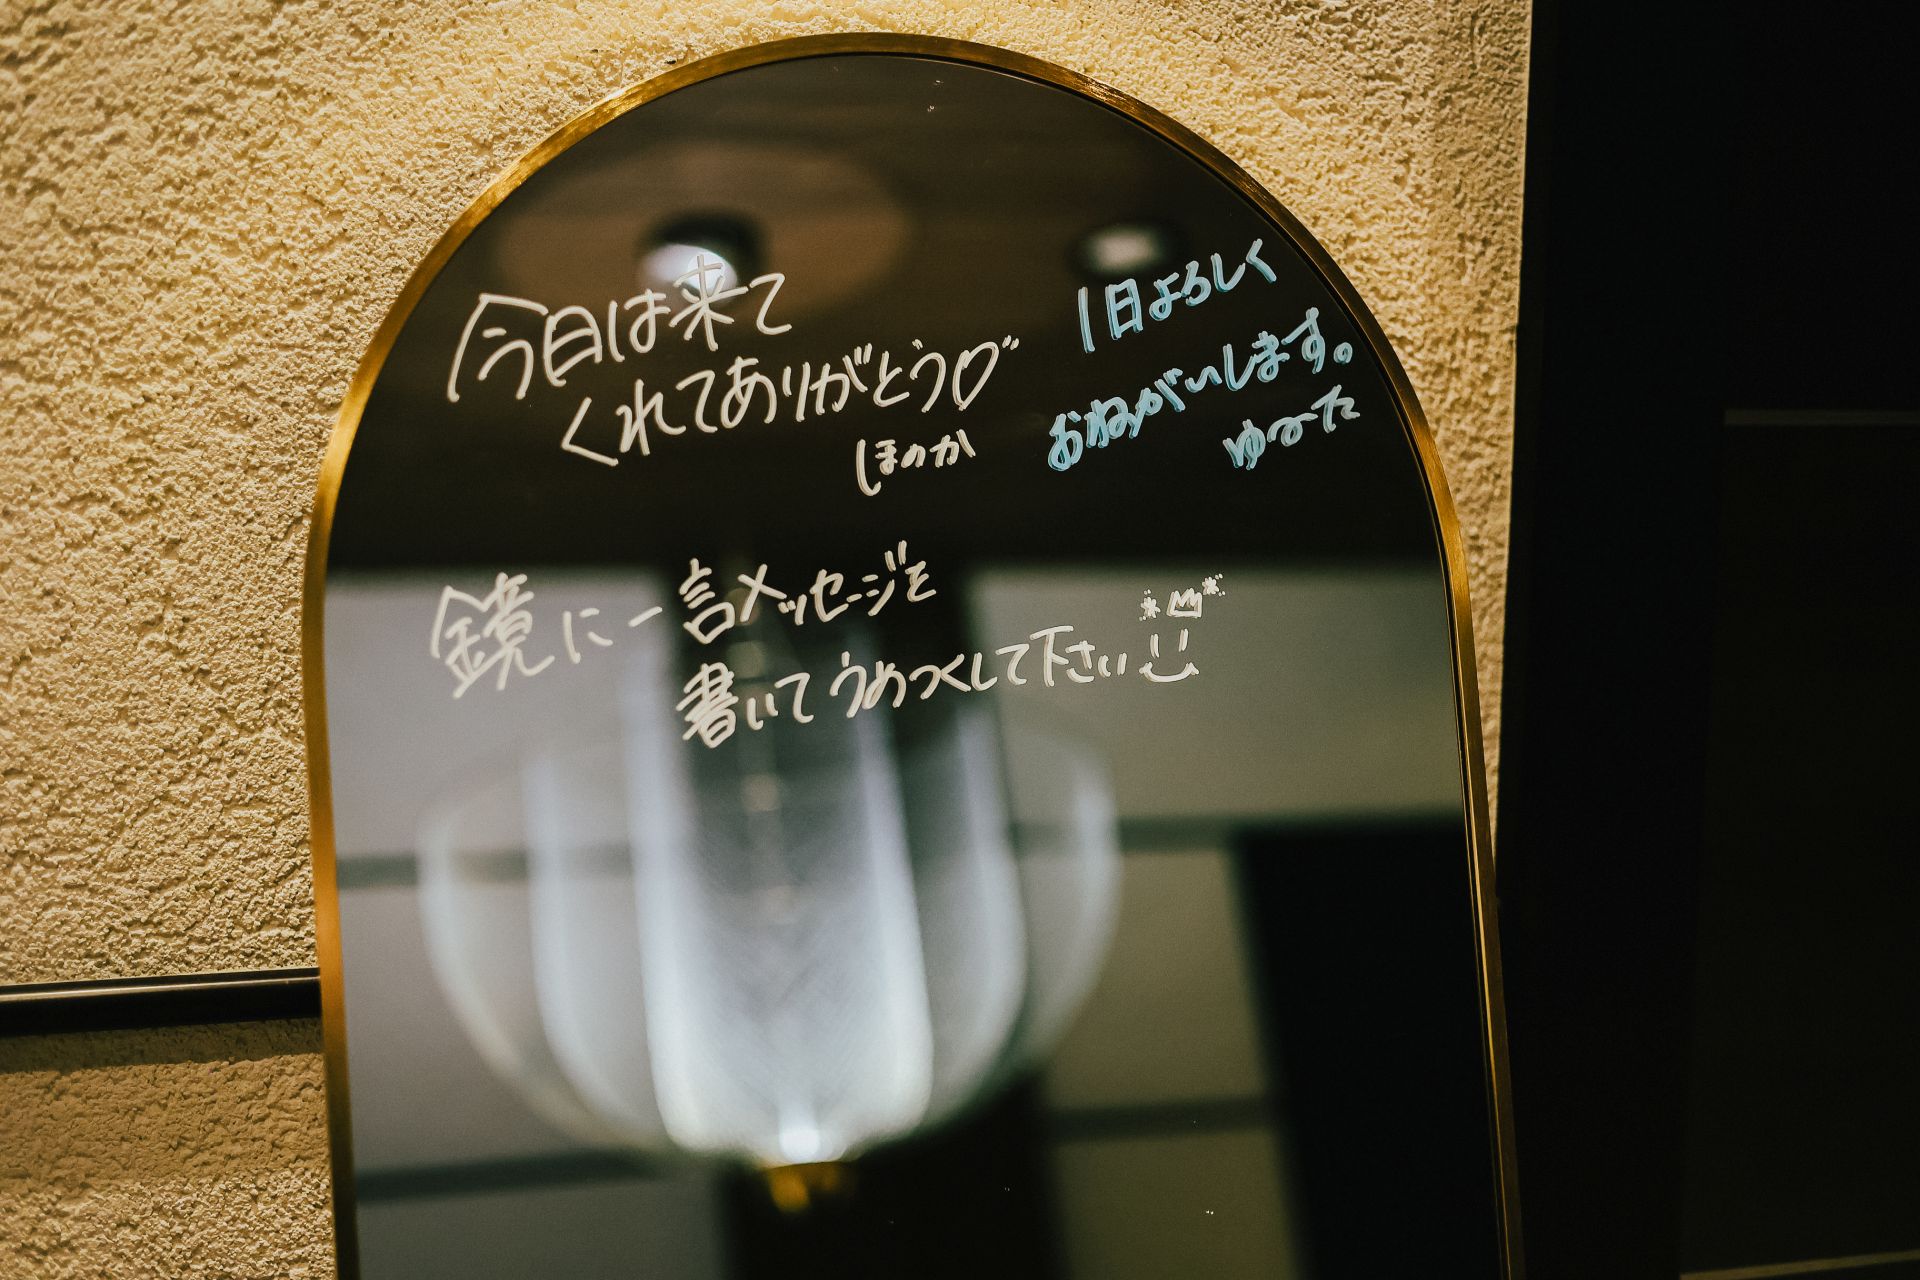 今日は来て
くれてありがとう♡
ほのか
1日よろしく
おねがいします。
ゆーた
鏡に一言メッセージを
書いてうめつくして下さい